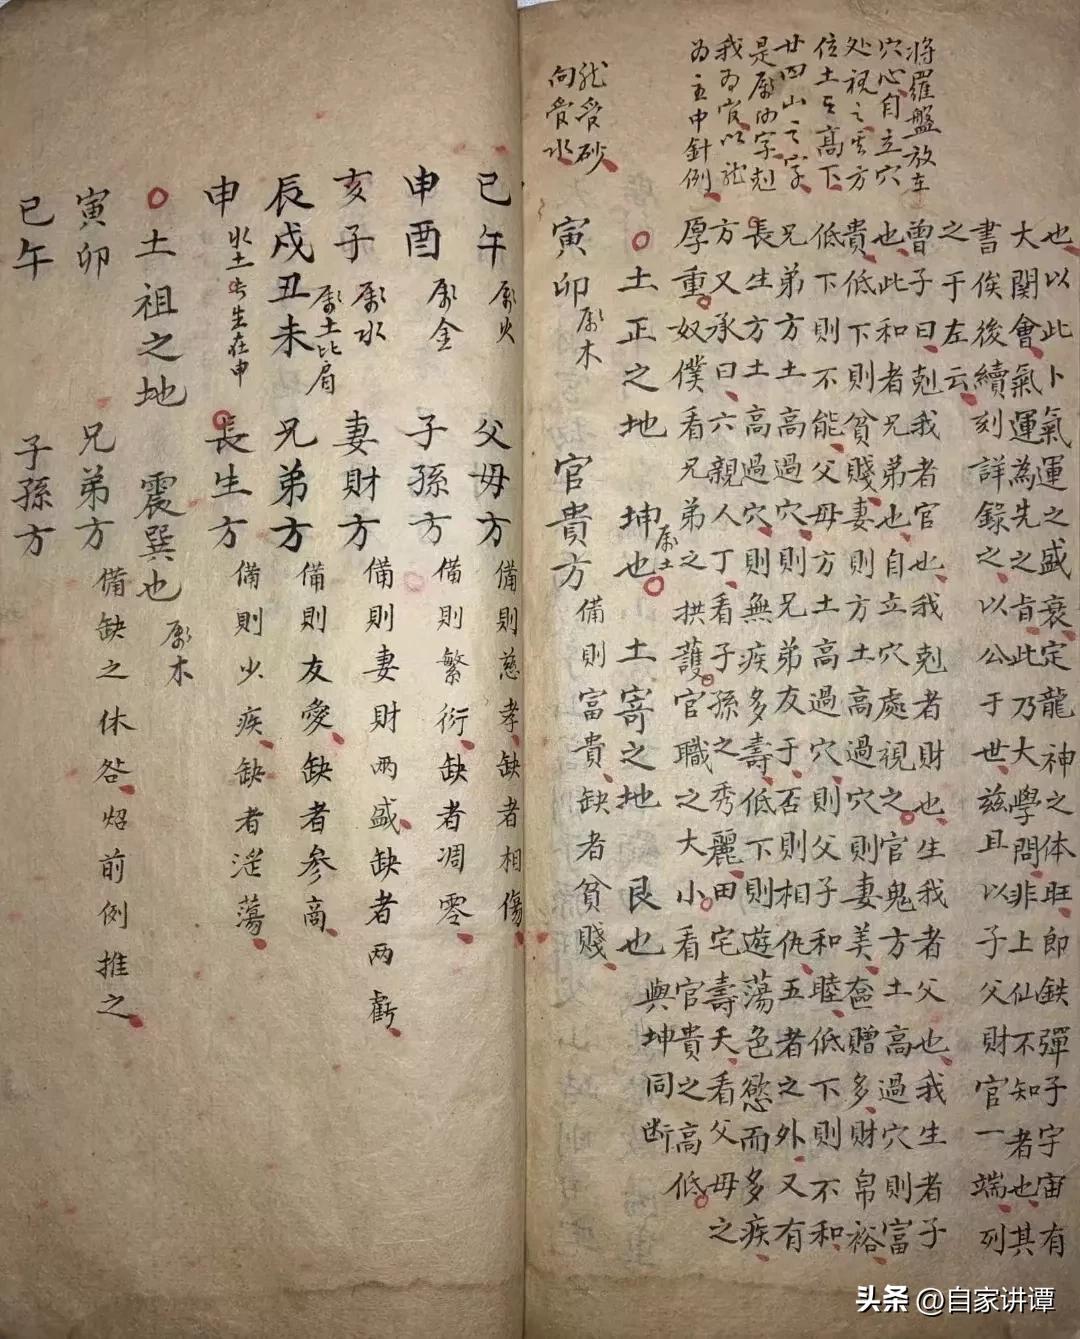 將羅盤放在
穴心自立穴
处視之其方
位土之高下
廿四山之字
是屬何字剋
我为官以龍
为主中針例
龍受砂
向受水
也以此卜氣運之盛衰定龍神之体旺即鉄彈子宇宙有
大関會氣運為先之旨此乃大學問非上仙不知者也其
書俟後續刻詳錄之以公于世茲且以子父財官一端列
之于左云
曾子曰剋我者官也我剋者財也生我者父也我生者子
也此和者兄弟也自立穴處視之官鬼方土高過穴則富
貴低下則貧賤妻則方土高過穴則妻美奩贈多財帛裕
低下則不能父母方土高過穴則父子和睦低下則不和
兄弟方土高過穴則兄弟友于否則相仇五者之外又有
長生方土高過穴則無疾多壽低下則遊蕩色慾而多疾
方又承曰六親人丁看子孫之秀麗田宅壽夭看父母之
厚重奴僕看兄弟之拱護官職之大小看官貴之高低
○土正之地 坤也屬土 土寄之地 艮也 與坤同断
寅卯屬木 官貴方 備則富貴缺者貧賤
巳午屬火 父母方 備則慈孝缺者相傷
申酉屬金 子孫方 備則繁衍缺者凋零
亥子屬水 妻財方 備則妻財两盛缺者两虧
辰戌丑未屬土比肩 兄弟方 備則友愛缺者參商
申水土長生在申 長生方 備則少疾缺者淫蕩
○土祖之地 震巽也屬木
寅卯 兄弟方 備缺之休咎炤前例推之
巳午 子孫方
头条 @自家讲谭